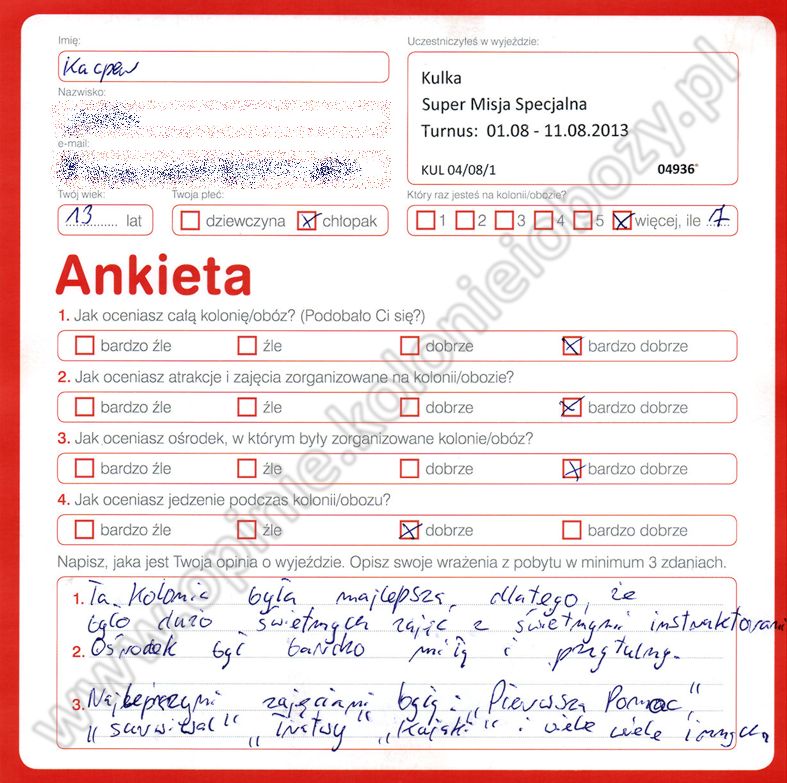 Imię:
Kacper
Uczestniczyłeś w wyjeździe:
Kulka
Super Misja Specjalna
Turnus: 01.08 - 11.08.2013
KUL 04/08/1 04936
Nazwisko:
e-mail:
Twój wiek:
13 lat
Twoja płeć:
dziewczyna chłopak
Który raz jesteś na kolonii/obozie?
1 2 3 4 5 więcej, ile 7
Ankieta
1. Jak oceniasz całą kolonię/obóz? (Podobało Ci się?)
bardzo źle źle dobrze bardzo dobrze
2. Jak oceniasz atrakcje i zajęcia zorganizowane na kolonii/obozie?
bardzo źle źle dobrze bardzo dobrze
3. Jak oceniasz ośrodek, w którym były zorganizowane kolonie/obóz?
bardzo źle źle dobrze bardzo dobrze
4. Jak oceniasz jedzenie podczas kolonii/obozu?
bardzo źle źle dobrze bardzo dobrze
Napisz, jaka jest Twoja opinia o wyjeździe. Opisz swoje wrażenia z pobytu w minimum 3 zdaniach.
1. Ta kolonia była najlepsza, dlatego, że
było dużo świetnych zajęć z świetnymi instruktorami
2. Ośrodek był bardzo miły i przytulny.
3. Najlepszymi zajęciami były: „Pierwsza Pomoc",
„surwiwal" „Tratwy" „Kajaki" i wiele wiele innych
www.opinie.kolonieiobozy.pl